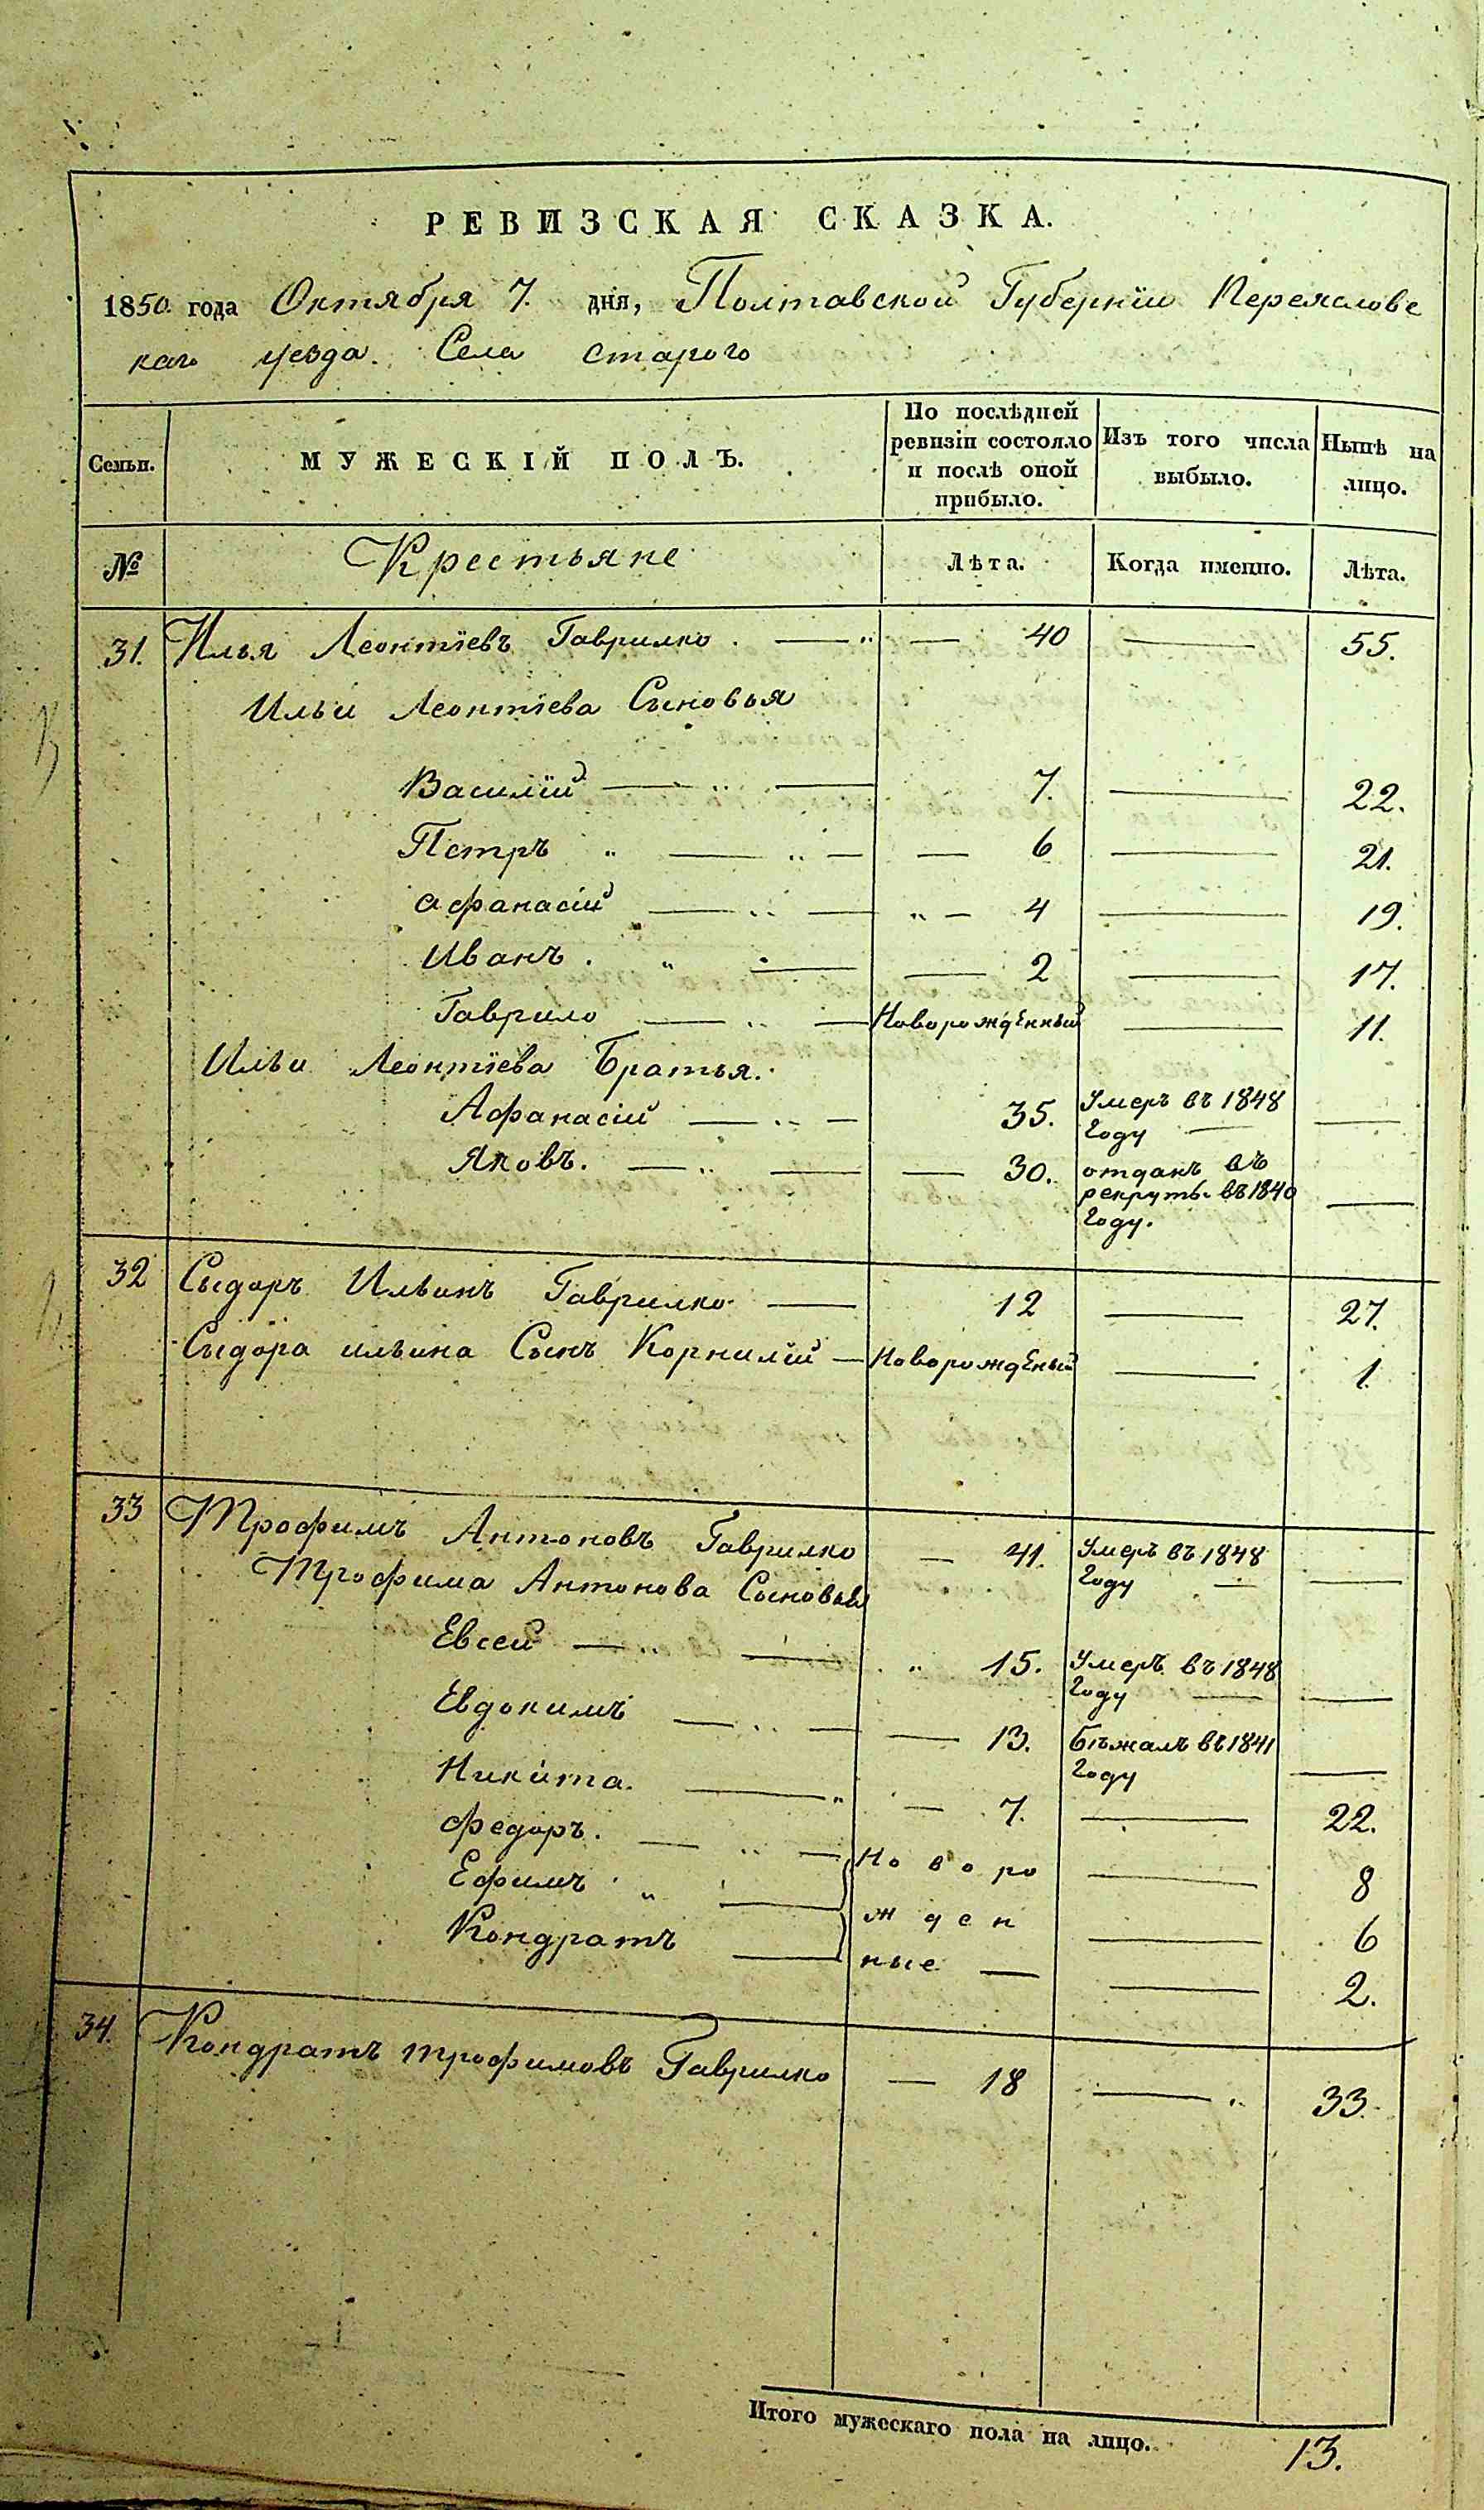 РЕВИЗСКАЯ СКАЗКА.
1850 года Октября 7. дня, Полтавской Губерніи Переяславс
каго уезда. Села Старого
Семьи. МУЖЕСКІЙ ПОЛЪ. По послѣдней ревизіи состояло и послѣ оной прибыло. Изъ того числа выбыло. Нынѣ на лицо.
№ Крестьяне Лѣта. Когда именно. Лѣта.
31. Илья Леонтіевъ Гаврилко. — „ — 40 — 55.
Ильи Леонтіева Сыновья
Василій — „ — 7. — 22.
Петръ „ — „ — — 6 — 21.
Афанасій — „ — „ — 4 — 19.
Иванъ. „ — — 2 — 17.
Гаврило — „ — Новорожденный — 11.
Ильи Леонтіева Братья.
Афанасій — „ — 35. Умеръ въ 1848 —
Году —
Яковъ. — „ — — 30. отданъ въ
рекруты въ 1840 —
Году.
32 Сыдоръ Ильинъ Гаврилко — 12 — 27.
Сыдора ильина Сынъ Корнилій — Новорожденый — 1.
33 Трофимъ Антоновъ Гаврилко — 41. Умеръ въ 1848 —
Году —
Трофима Антонова Сыновья
Евсей — „ — „ 15. Умеръ въ 1848
Году — —
Евдокимъ — „ — — 13. Бѣжалъ въ 1841
Году —
Никита. — „ — 7. — 22.
Федоръ. — „ — Новоро — 8
Ефимъ „ — жден — 6
Кондратъ — ные — — 2.
34. Кондратъ трофимовъ Гаврилко — 18 — „ 33.
Итого мужескаго пола на лицо. 13.